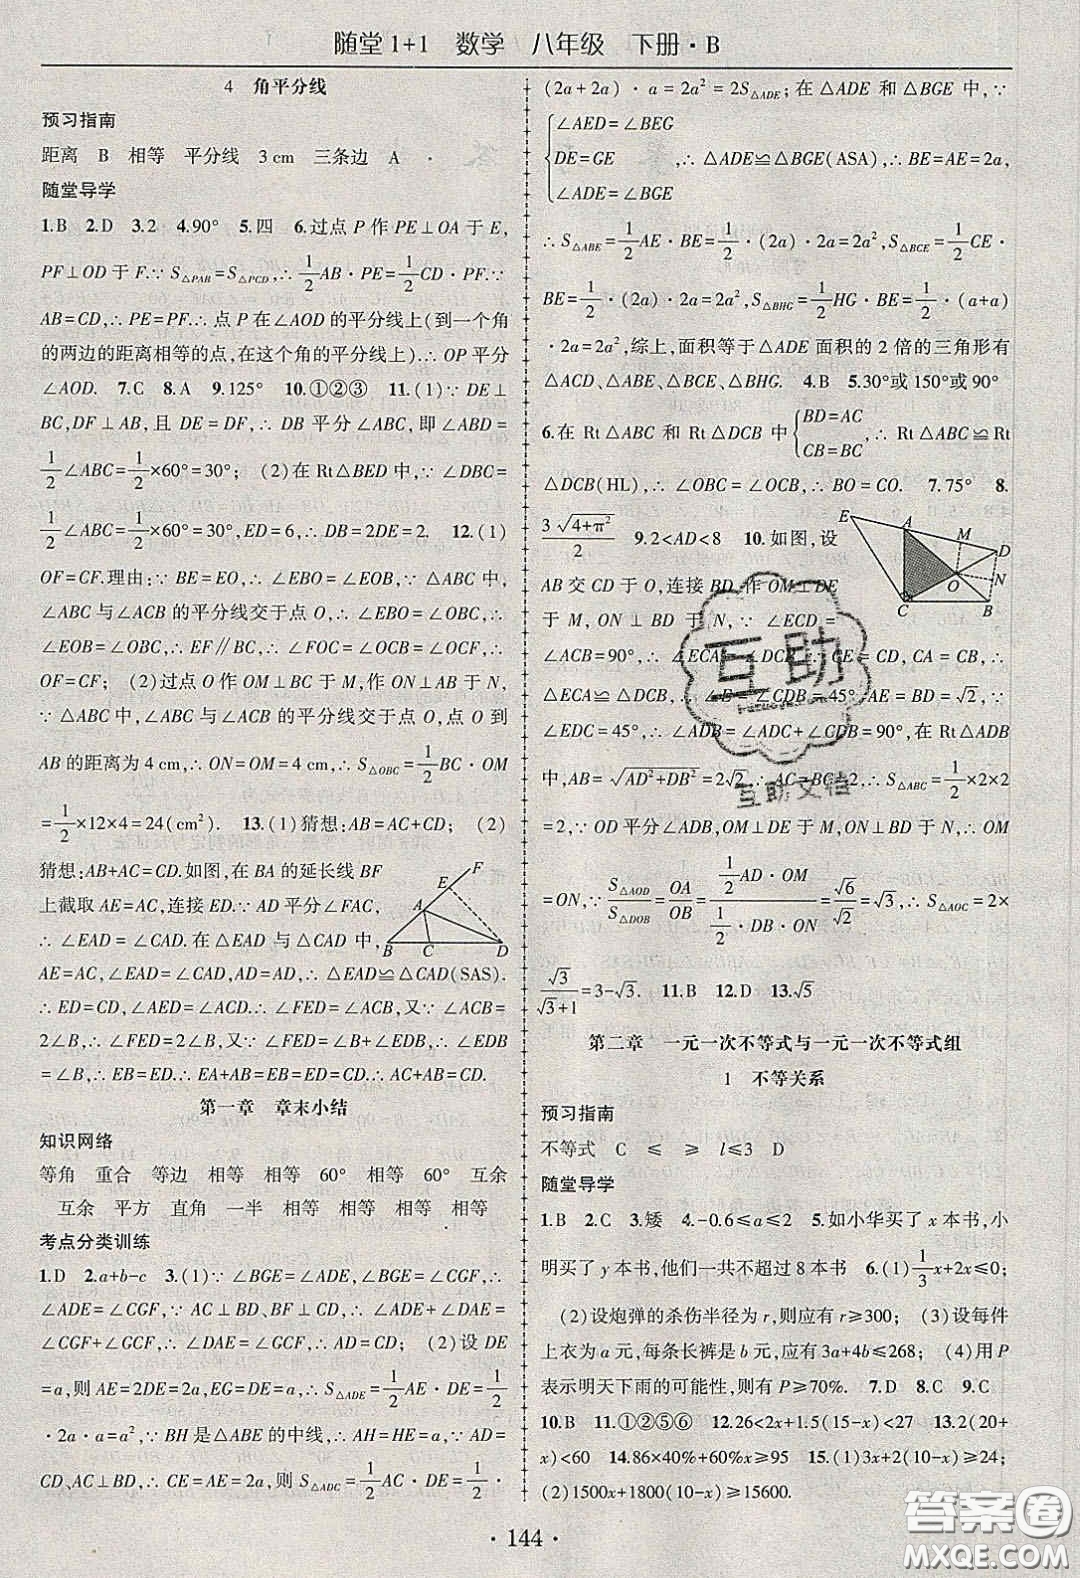 随堂1+1 数学 八年级 下册·B
4 角平分线
预习指南
距离 B 相等 平分线 3 cm 三条边 A
随堂导学
1.B 2.D 3.2 4.90° 5.四 6.过点 P 作 PE⊥OA 于 E,
PF⊥OD 于 F.∵ S△PAB=S△PCD,∴ 1/2 AB·PE=1/2 CD·PF.∵
AB=CD,∴ PE=PF.∴ 点 P 在∠AOD 的平分线上(到一个角
的两边的距离相等的点,在这个角的平分线上).∴ OP 平分
∠AOD. 7.C 8.A 9.125° 10.①②③ 11.(1)∵ DE⊥
BC,DF⊥AB,且 DE=DF,∴ DB 平分∠ABC,即∠ABD=
1/2∠ABC=1/2×60°=30°; (2)在 Rt△BED 中,∵ ∠DBC=
1/2∠ABC=1/2×60°=30°,ED=6,∴ DB=2DE=2. 12.(1)
OF=CF.理由:∵ BE=EO,∴ ∠EBO=∠EOB,∵ △ABC 中,
∠ABC 与∠ACB 的平分线交于点 O,∴ ∠EBO=∠OBC,∴
∠EOB=∠OBC,∴ EF∥BC,∴ ∠FOC=∠OCB=∠OCF,∴
OF=CF; (2)过点 O 作 OM⊥BC 于 M,作 ON⊥AB 于 N,
∵ △ABC 中,∠ABC 与∠ACB 的平分线交于点 O,点 O 到
AB 的距离为 4 cm,∴ ON=OM=4 cm,∴ S△OBC=1/2 BC·OM
=1/2×12×4=24(cm²). 13.(1)猜想:AB=AC+CD; (2)
猜想:AB+AC=CD.如图,在 BA 的延长线 BF
上截取 AE=AC,连接 ED.∵ AD 平分∠FAC,
∴ ∠EAD=∠CAD.在△EAD 与△CAD 中,
AE=AC,∠EAD=∠CAD,AD=AD,∴ △EAD≌△CAD(SAS).
∴ ED=CD,∠AED=∠ACD.∴ ∠FED=∠ACB,又∵ ∠ACB=
2∠B,∴ ∠FED=2∠B,又∵ ∠FED=∠B+∠EDB,∴ ∠EDB
=∠B,∴ EB=ED.∴ EA+AB=EB=ED=CD.∴ AC+AB=CD.
第一章 章末小结
知识网络
等角 重合 等边 相等 相等 60° 相等 60° 互余
互余 平方 直角 一半 相等 相等 相等 相等
考点分类训练
1.D 2.a+b-c 3.(1)∵ ∠BGE=∠ADE,∠BGE=∠CGF,∴
∠ADE=∠CGF,∵ AC⊥BD、BF⊥CD,∴ ∠ADE+∠DAE=
∠CGF+∠GCF,∴ ∠DAE=∠GCF,∴ AD=CD; (2)设 DE
=a,则 AE=2DE=2a,EG=DE=a,∴ S△ADE=1/2 AE·DE=1/2
·2a·a=a²,∵ BH 是△ABE 的中线,∴ AH=HE=a,∵ AD=
CD、AC⊥BD,∴ CE=AE=2a,则 S△ADC=1/2 AC·DE=1/2·
(2a+2a)·a=2a²=2S△ADE;在△ADE 和△BGE 中,∵
{∠AED=∠BEG
DE=GE ,∴ △ADE≌△BGE(ASA),∴ BE=AE=2a,
∠ADE=∠BGE
∴ S△ABE=1/2 AE·BE=1/2·(2a)·2a=2a²,S△BCE=1/2 CE·
BE=1/2·(2a)·2a=2a²,S△BHG=1/2 HG·BE=1/2·(a+a)
·2a=2a²,综上,面积等于△ADE 面积的 2 倍的三角形有
△ACD、△ABE、△BCE、△BHG. 4.B 5.30°或150°或90°
6.在 Rt△ABC 和 Rt△DCB 中{BD=AC
CB=BC,∴ Rt△ABC≌Rt
△DCB(HL),∴ ∠OBC=∠OCB,∴ BO=CO. 7.75° 8.
3√(4+π²)/2 9.2<AD<8 10.如图,设
AB 交 CD 于 O,连接 BD,作 OM⊥DE
于 M,ON⊥BD 于 N,∵ ∠ECD=
∠ACB=90°,∴ ∠ECA=∠DCB,∵ CE=CD,CA=CB,∴
△ECA≌△DCB,∴ ∠E=∠CDB=45°,AE=BD=√2,∵
∠EDC=45°,∴ ∠ADB=∠ADC+∠CDB=90°,在 Rt△ADB
中,AB=√(AD²+DB²)=2√2,∴ AC=BC=2,∴ S△ABC=1/2×2×2
=2,∵ OD 平分∠ADB,OM⊥DE 于 M,ON⊥BD 于 N,∴ OM
=ON,∵ S△AOD/S△DOB=OA/OB=(1/2 AD·OM)/(1/2·DB·ON)=√6/√2=√3,∴ S△AOC=2×
√3/(√3+1)=3-√3. 11.B 12.D 13.√5
第二章 一元一次不等式与一元一次不等式组
1 不等关系
预习指南
不等式 C ≤ ≥ l≤3 D
随堂导学
1.B 2.C 3.矮 4.-0.6≤a≤2 5.如小华买了 x 本书,小
明买了 y 本书,他们一共不超过 8 本书 6.(1)1/3x+2x≤0;
(2)设炮弹的杀伤半径为 r,则应有 r≥300; (3)设每件
上衣为 a 元,每条长裤是 b 元,应有 3a+4b≤268; (4)用 P
表示明天下雨的可能性,则有 P≥70%. 7.D 8.C 9.C
10.B 11.①②⑤⑥ 12.26<2x+1.5x<27 13.2(20+
x)<60 14.86×40%+60%x≥95 15.(1)3x+2(10-x)≥24;
(2)1500x+1800(10-x)≥15600.
A
B
C
D
E
F
E
A
M
D
N
O
C
B
互助
互助文档
·144·
答案圈
MXQE.COM